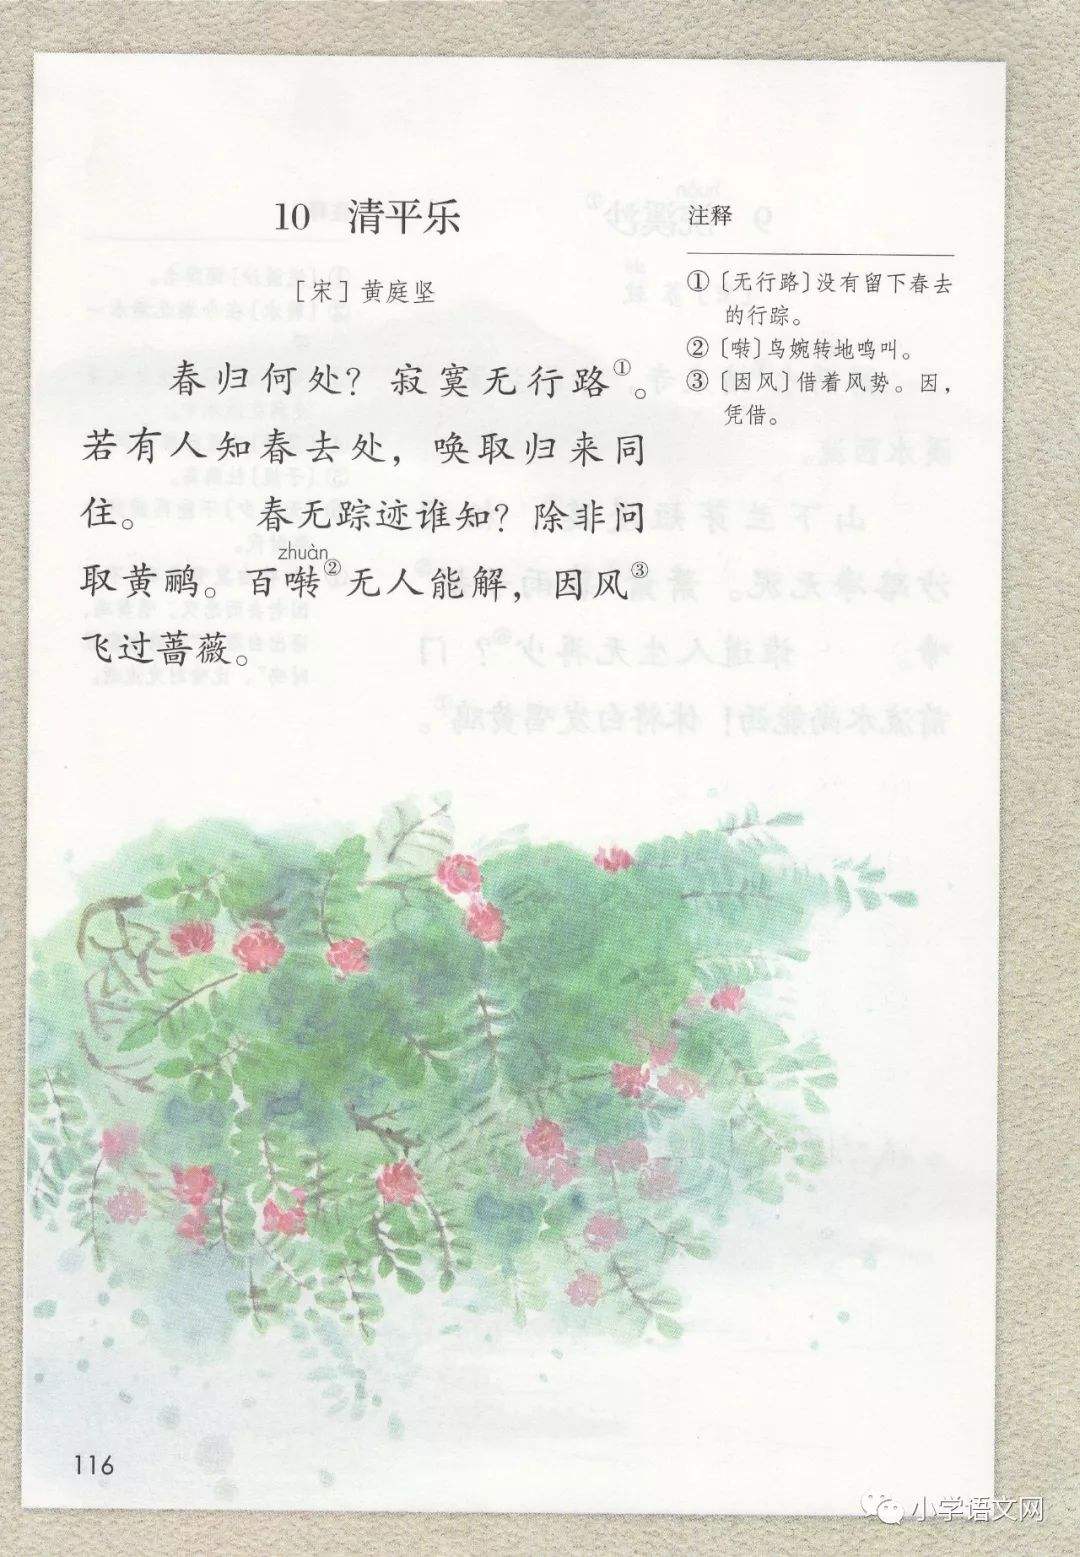 10 清平乐
［宋］黄庭坚
春归何处？寂寞无行路①。
若有人知春去处，唤取归来同
住。 春无踪迹谁知？除非问
zhuàn
取黄鹂。百啭②无人能解，因风③
飞过蔷薇。
注释
①〔无行路〕没有留下春去
的行踪。
②〔啭〕鸟婉转地鸣叫。
③〔因风〕借着风势。因，
凭借。
116
小学语文网